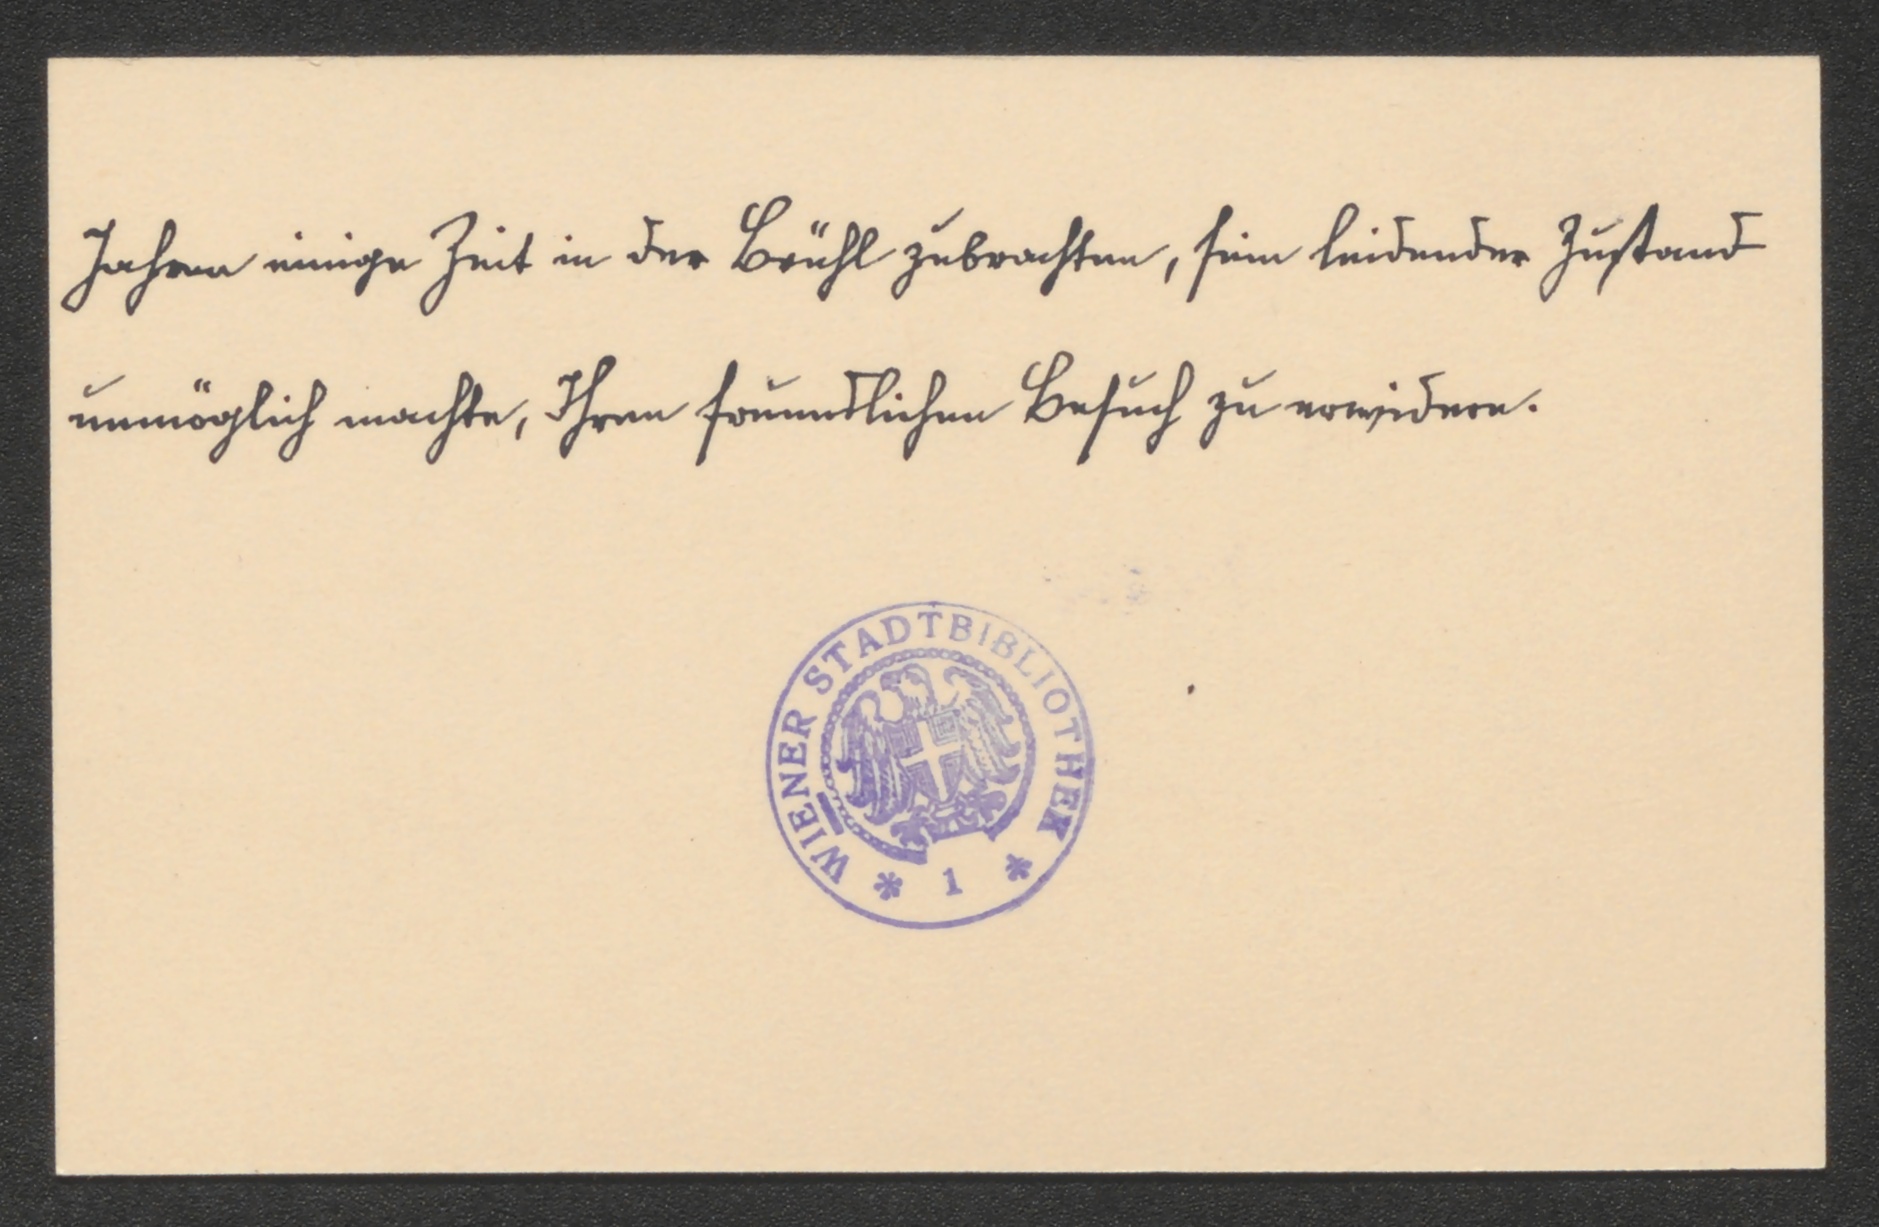 Jahren einige Zeit in der Brühl zubrachten, sein leidender Zustand
unmöglich machte, Ihren freundlichen Besuch zu erwidern.
WIENER STADTBIBLIOTHEK
* 1 *